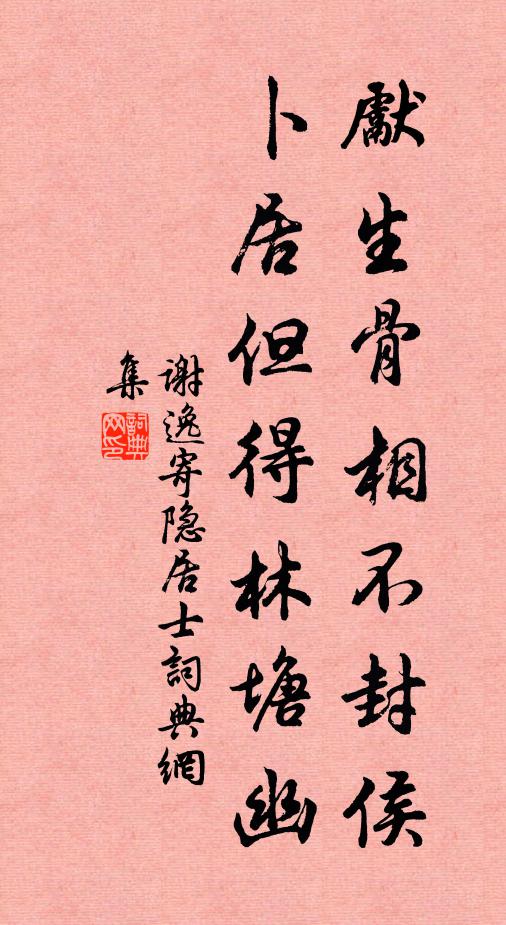 獻生骨相不封侯
卜居但得林塘幽
謝逸寄隐居士詞典網
集
詞典网印